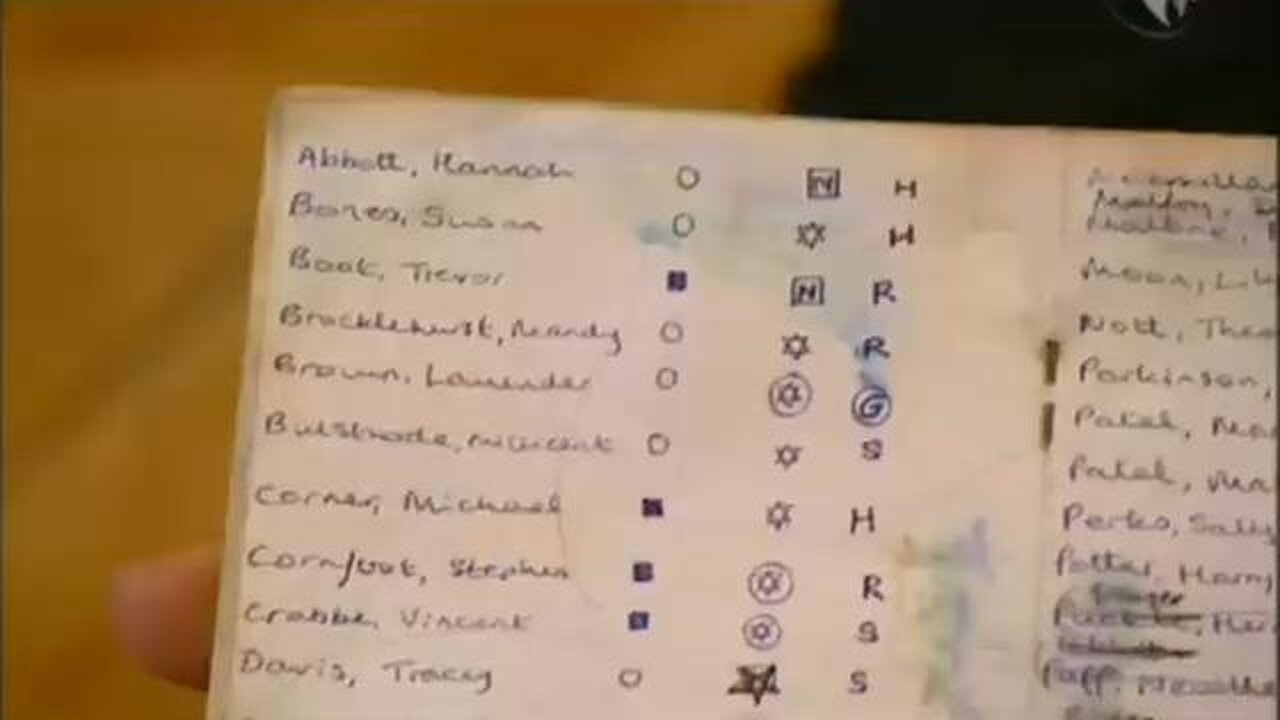 Abbott, Hannah N H
Bones, Susan H
Boot, Trevor N R
Brocklehurst, Mandy R
Brown, Lavender G
Bulstrode, Millicent S
Corner, Michael H
Cornfoot, Stephen R
Crabbe, Vincent S
Davis, Tracey S
Malfoy,
Malone,
Moon, Li
Nott, Theo
Parkinson,
Patel,
Patel,
Perks, Sally
Potter, Harry